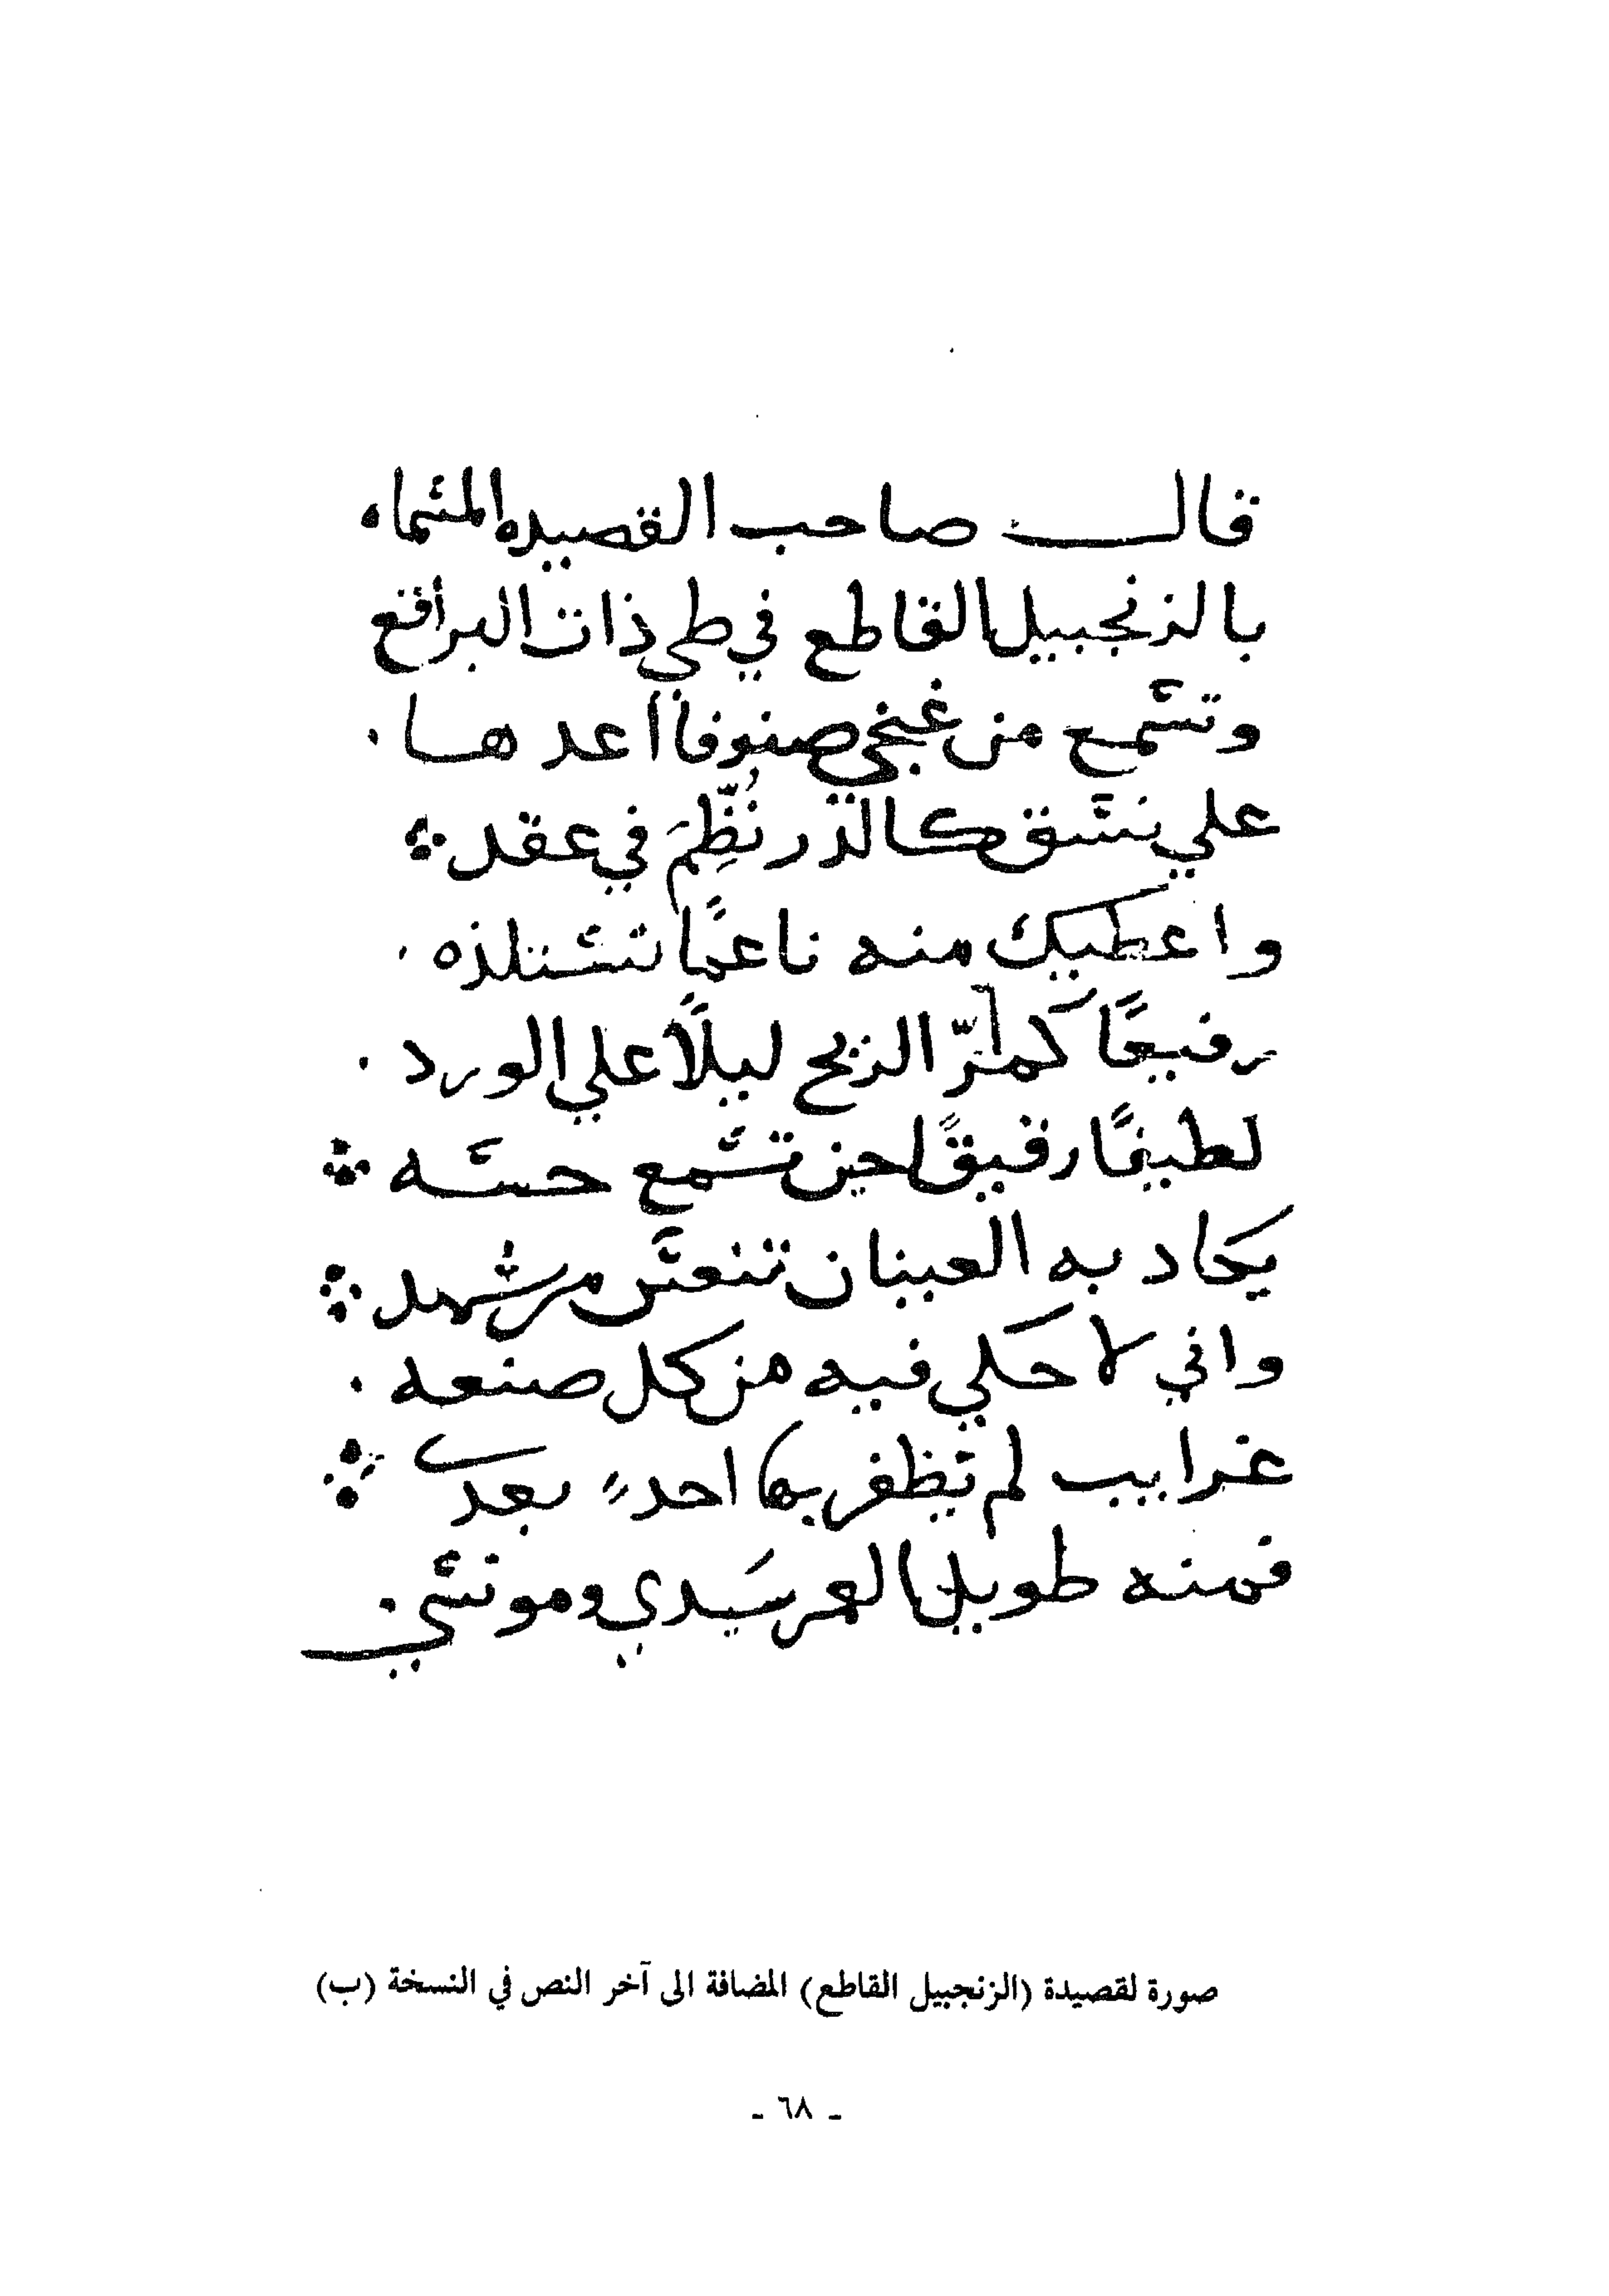 قال صاحب القصيده المسماه
بالزنجبيل القاطع في طي ذات البراقع
وتسمع من غنجي صنوفا اعدها .
علي نسق كالدر نُظِّمَ في عقد ؞
واعطيك منه ناعمًا تستلذه .
رفيعًا كمرّ الريح ليلًا علي الورد .
لطيفًا رقيقًا حين تسمع حسه ؞
يكاد به العينان تنعس من شهد ؞
واني لاحكي فيه من كل صنعه .
غرايب لم يظفر بها احد بعدي ؞
فمنه طويل العمر سيدي ومونسي .
صورة لقصيدة (الزنجبيل القاطع) المضافة الى آخر النص في النسخة (ب)
- ٦٨ -